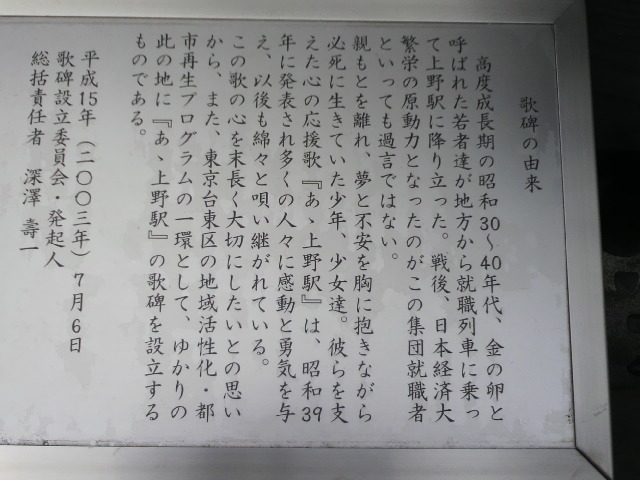 歌碑の由来
高度成長期の昭和30〜40年代、金の卵と
呼ばれた若者達が地方から就職列車に乗っ
て上野駅に降り立った。戦後、日本経済大
繁栄の原動力となったのがこの集団就職者
といっても過言ではない。
親もとを離れ、夢と不安を胸に抱きながら
必死に生きていた少年、少女達。彼らを支
えた心の応援歌『あゝ上野駅』は、昭和39
年に発表され多くの人々に感動と勇気を与
え、以後も綿々と唄い継がれている。
この歌の心を末長く大切にしたいとの思い
から、また、東京台東区の地域活性化・都
市再生プログラムの一環として、ゆかりの
此の地に『あゝ上野駅』の歌碑を設立する
ものである。
平成15年(二〇〇三年)7月6日
歌碑設立委員会・発起人
総括責任者 深澤 壽一